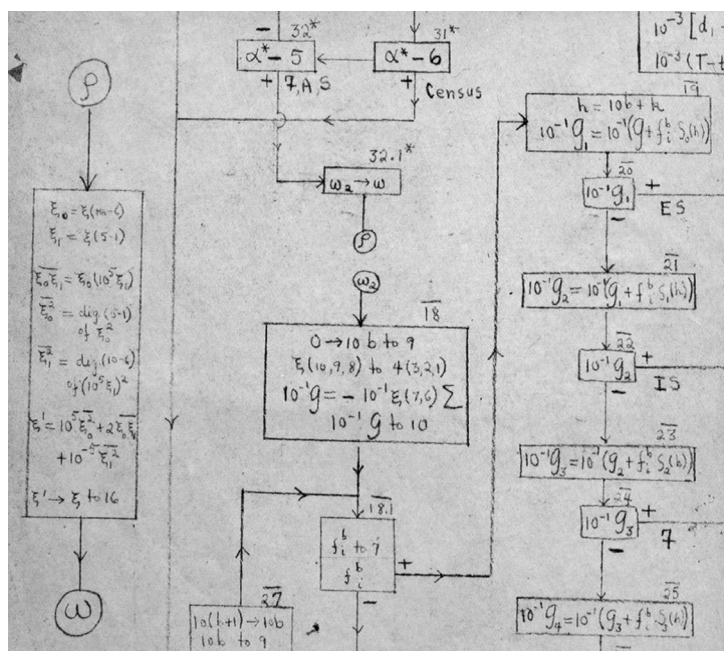 ρ
ξ₁ = ξ(5-1)
ξ₀ξ₁ = ξ₀(10⁵ξ₁)
ξ₀² = dig (5-1)
of ξ₀²
ξ₁² = dig (10-6)
of (10⁵ξ₁)²
ξ' = 10⁵ξ₀² + 2ξ₀ξ₁
+ 10⁻⁵ξ₁²
ξ' → ξ to 16
ω
32*
α* - 5
−
+ 7, A, S
31*
α* - 6
+
Census
32.1*
ω₂ → ω
ρ
ω₂
18
0 → 10b to 9
ξ(10,9,8) to 4(3,2,1)
10⁻¹g = - 10⁻¹ξ(7,6)∑
10⁻¹g to 10
18.1
fᵢᵇ to 7
fᵢᵇ
+
−
27
10(b+1) → 10b
10b to 9
10⁻³[d₁ -
10⁻³(T-t
19
h = 10b + k
10⁻¹g₁ = 10⁻¹(g + fᵢᵇ·S₀(h))
20
10⁻¹g₁
+
ES
−
21
10⁻¹g₂ = 10⁻¹(g₁ + fᵢᵇ·S₁(h))
22
10⁻¹g₂
+
IS
−
23
10⁻¹g₃ = 10⁻¹(g₂ + fᵢᵇ·S₂(h))
24
10⁻¹g₃
+
7
−
25
10⁻¹g₄ = 10⁻¹(g₃ + fᵢᵇ·S₃(h))